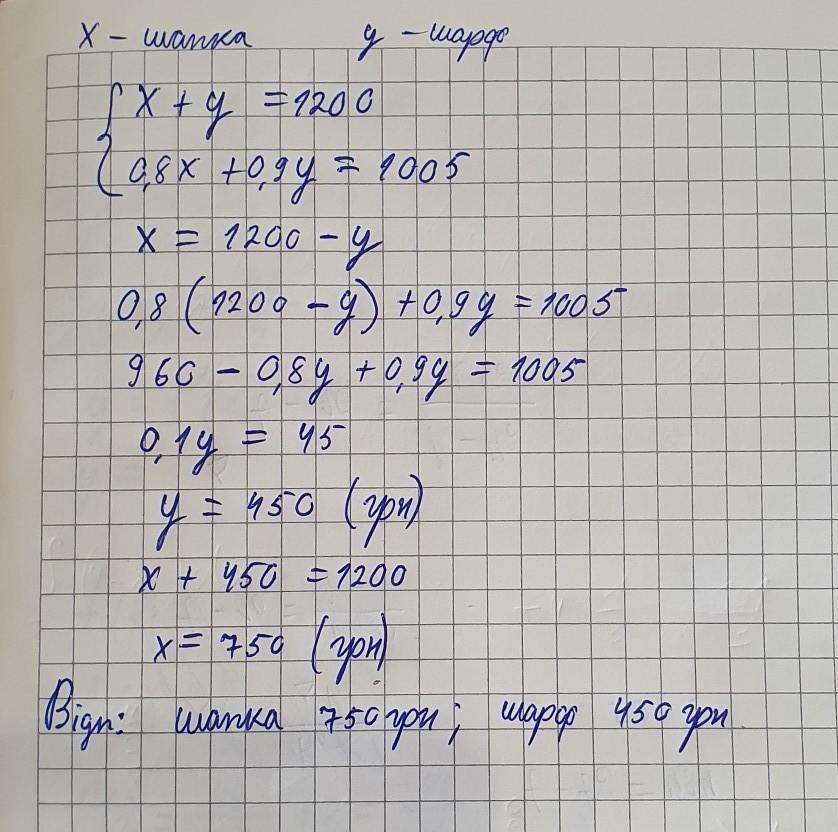 x – шапка y – шарф
x + y = 1200
0,8x + 0,9y = 1005
x = 1200 – y
0,8 (1200 – y) + 0,9y = 1005
960 – 0,8y + 0,9y = 1005
0,1y = 45
y = 450 (грн)
x + 450 = 1200
x = 750 (грн)
Відп: шапка 750 грн; шарф 450 грн.